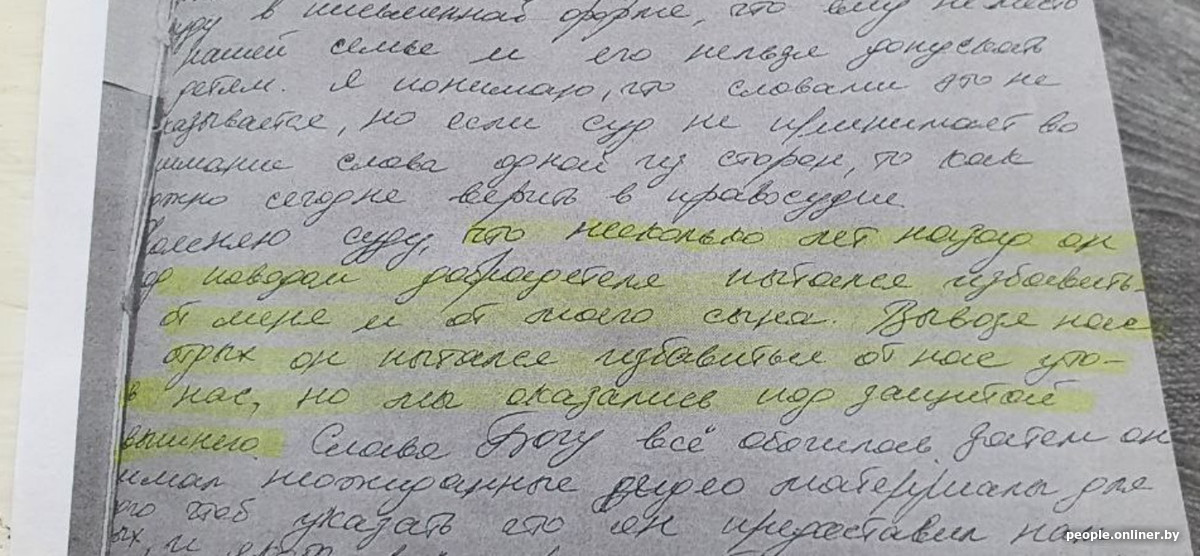 в письменной форме, что ему не место
нашей семье и его нельзя допускать
детям. Я понимаю, что словами это не
казывается, но если суд не принимает во
имание слова одной из сторон, то как
ожно сегодне верить в правосудие
оясняю суду, что несколько лет назад он
од поводом добродетеля пытался избавить-
от меня и от моего сына. Вывозя нас
отдых он пытался избавиться от нас уто-
в нас, но мы оказались под защитой
вышнего. Слава Богу всё обошлось. Затем он
имал неожиданные видео материалы для
ого чтоб указать что он предоставил нам
ых, и
people.onliner.by